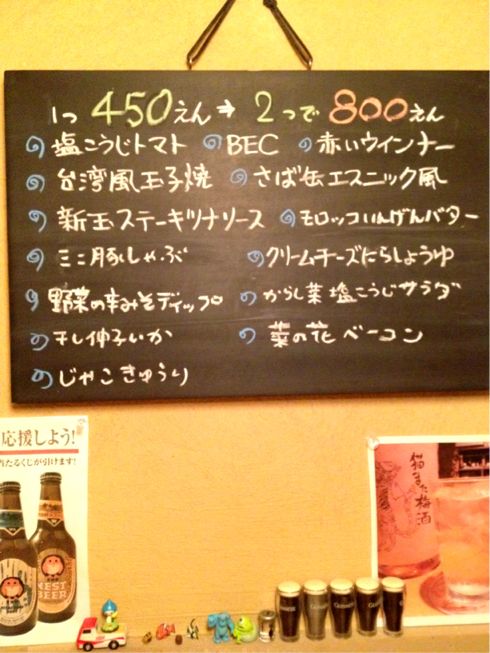 1つ 450えん→ 2つで 800えん
塩こうじトマト BEC 赤いウインナー
台湾風玉子焼 さば缶エスニック風
新玉ステーキツナソース モロッコいんげんバター
ミニ豚しゃぶ クリームチーズにらしょうゆ
野菜の辛みそディップ からし菜塩こうじサラダ
干し伸子いか 菜の花ベーコン
じゃこきゅうり
応援しよう!
当たるくじが引けます!
NEST
BEER
猫また梅酒
GUINNESS